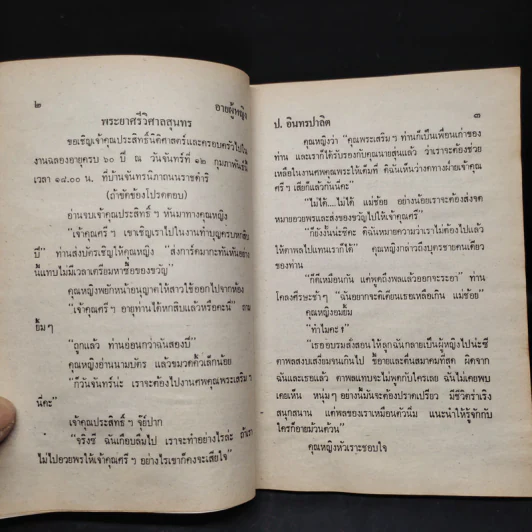 ๒ อายผู้หญิง
พระยาศรีวิศาลสุนทร
ขอเชิญเจ้าคุณประสิทธิ์นิติศาสตร์และครอบครัวไปใน
งานฉลองอายุครบ ๖๐ ปี ณ วันจันทร์ที่ ๑๒ กุมภาพันธ์นี้
เวลา ๑๙.๐๐ น. ที่บ้านจันทรนิภาถนนราชดำริ
(ถ้าขัดข้องโปรดตอบ)
อ่านจบเจ้าคุณประสิทธิ์ ฯ หันมาทางคุณหญิง
"เจ้าคุณศรี ฯ เขาเชิญเราไปในงานทำบุญครบหกสิบ
ปี" ท่านส่งบัตรเชิญให้คุณหญิง "ส่งการ์ดมากะทันหันอย่าง
นี้แทบไม่มีเวลาเตรียมหาซื้อของขวัญ"
คุณหญิงพยักหน้าอนุญาตให้สาวใช้ออกไปจากห้อง
"เจ้าคุณศรี ฯ อายุท่านได้หกสิบแล้วหรือคะนี่" ถาม
ยิ้ม ๆ
"ถูกแล้ว ท่านอ่อนกว่าฉันสองปี"
คุณหญิงอ่านนามบัตร แล้วขมวดคิ้วเล็กน้อย
"ก็วันจันทร์น่ะ เราจะต้องไปงานศพคุณพระเสริม ฯ
นี่คะ"
เจ้าคุณประสิทธิ์ ฯ จุ๊ย์ปาก
"จริงซี ฉันเกือบลืมไป เราจะทำอย่างไรล่ะ ถ้าเรา
ไม่ไปอวยพรให้เจ้าคุณศรี ฯ อย่างไรเขาก็คงจะเสียใจ"
ป. อินทรปาลิต ๓
คุณหญิงว่า "คุณพระเสริม ฯ ท่านก็เป็นเพื่อนเก่าของ
ท่าน และเราก็ได้รับรองกับคุณนายสุ่นแล้ว ว่าเราจะต้องช่วย
เหลือในงานศพคุณพระให้เต็มที่ ดิฉันเห็นว่างดทางฝ่ายเจ้าคุณ
ศรี ฯ เสียก็แล้วกันนี่คะ"
"ไม่ได้....ไม่ได้ แม่ช้อย อย่างน้อยเราจะต้องส่งจด
หมายอวยพรและส่งของขวัญไปให้เจ้าคุณศรี"
"ก็ยังงั้นน่ะซีคะ ดิฉันหมายความว่าเราไม่ต้องไปแล้ว
ให้ตาพลไปแทนเราก็ได้" คุณหญิงกล่าวถึงบุตรชายคนเดียว
ของท่าน
"ก็ดีเหมือนกัน แต่พูดถึงพลแล้วออกจะระอา" ท่าน
โคลงศีรษะช้า ๆ "ฉันอยากจะตีเตียนเธอเหลือเกิน แม่ช้อย"
คุณหญิงอมยิ้ม
"ทำไมคะ ?"
"เธออบรมสั่งสอน ให้ลูกฉันกลายเป็นผู้หญิงไปน่ะซี
ตาพลสงบเสงี่ยมจนเกินไป ขี้อายและตื่นสมาคมที่สุด ผิดจาก
ฉันและเธอแล้ว ตาพลแทบจะไม่พูดกับใครเลย ฉันไม่เคยพบ
เคยเห็น หนุ่ม ๆ อย่างนี้มันจะต้องปราดเปรียว มีชีวิตร่าเริง
สนุกสนาน แต่พลของเราเหมือนตัวนิ่ม แนะนำให้รู้จักกับ
ใครก็อายม้วนต้วน"
คุณหญิงหัวเราะชอบใจ